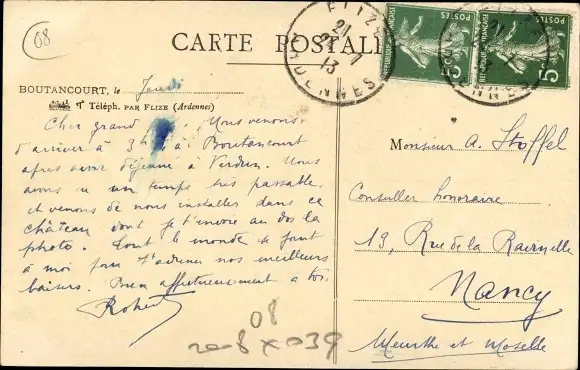 08
CARTE POSTALE
FLIZE
21
7
13
ARDENNES
POSTES
5c
BOUTANCOURT, le Jeudi
Téléph. PAR FLIZE (Ardennes)
Cher grand Nous venons
d'arriver à 3h à Boutancourt
après avoir déjeuné à Verdun. Nous
avons eu un temps très passable
et venons de nous installer dans ce
château dont je t'envoie au dos la
photo. Tout le monde se joint
à moi pour t'adresser nos meilleurs
baisers. Bien affectueusement à toi.
Robert
Monsieur A. Stoffel
Conseiller honoraire
13, Rue de la Ravinelle
Nancy
Meurthe et Moselle
08